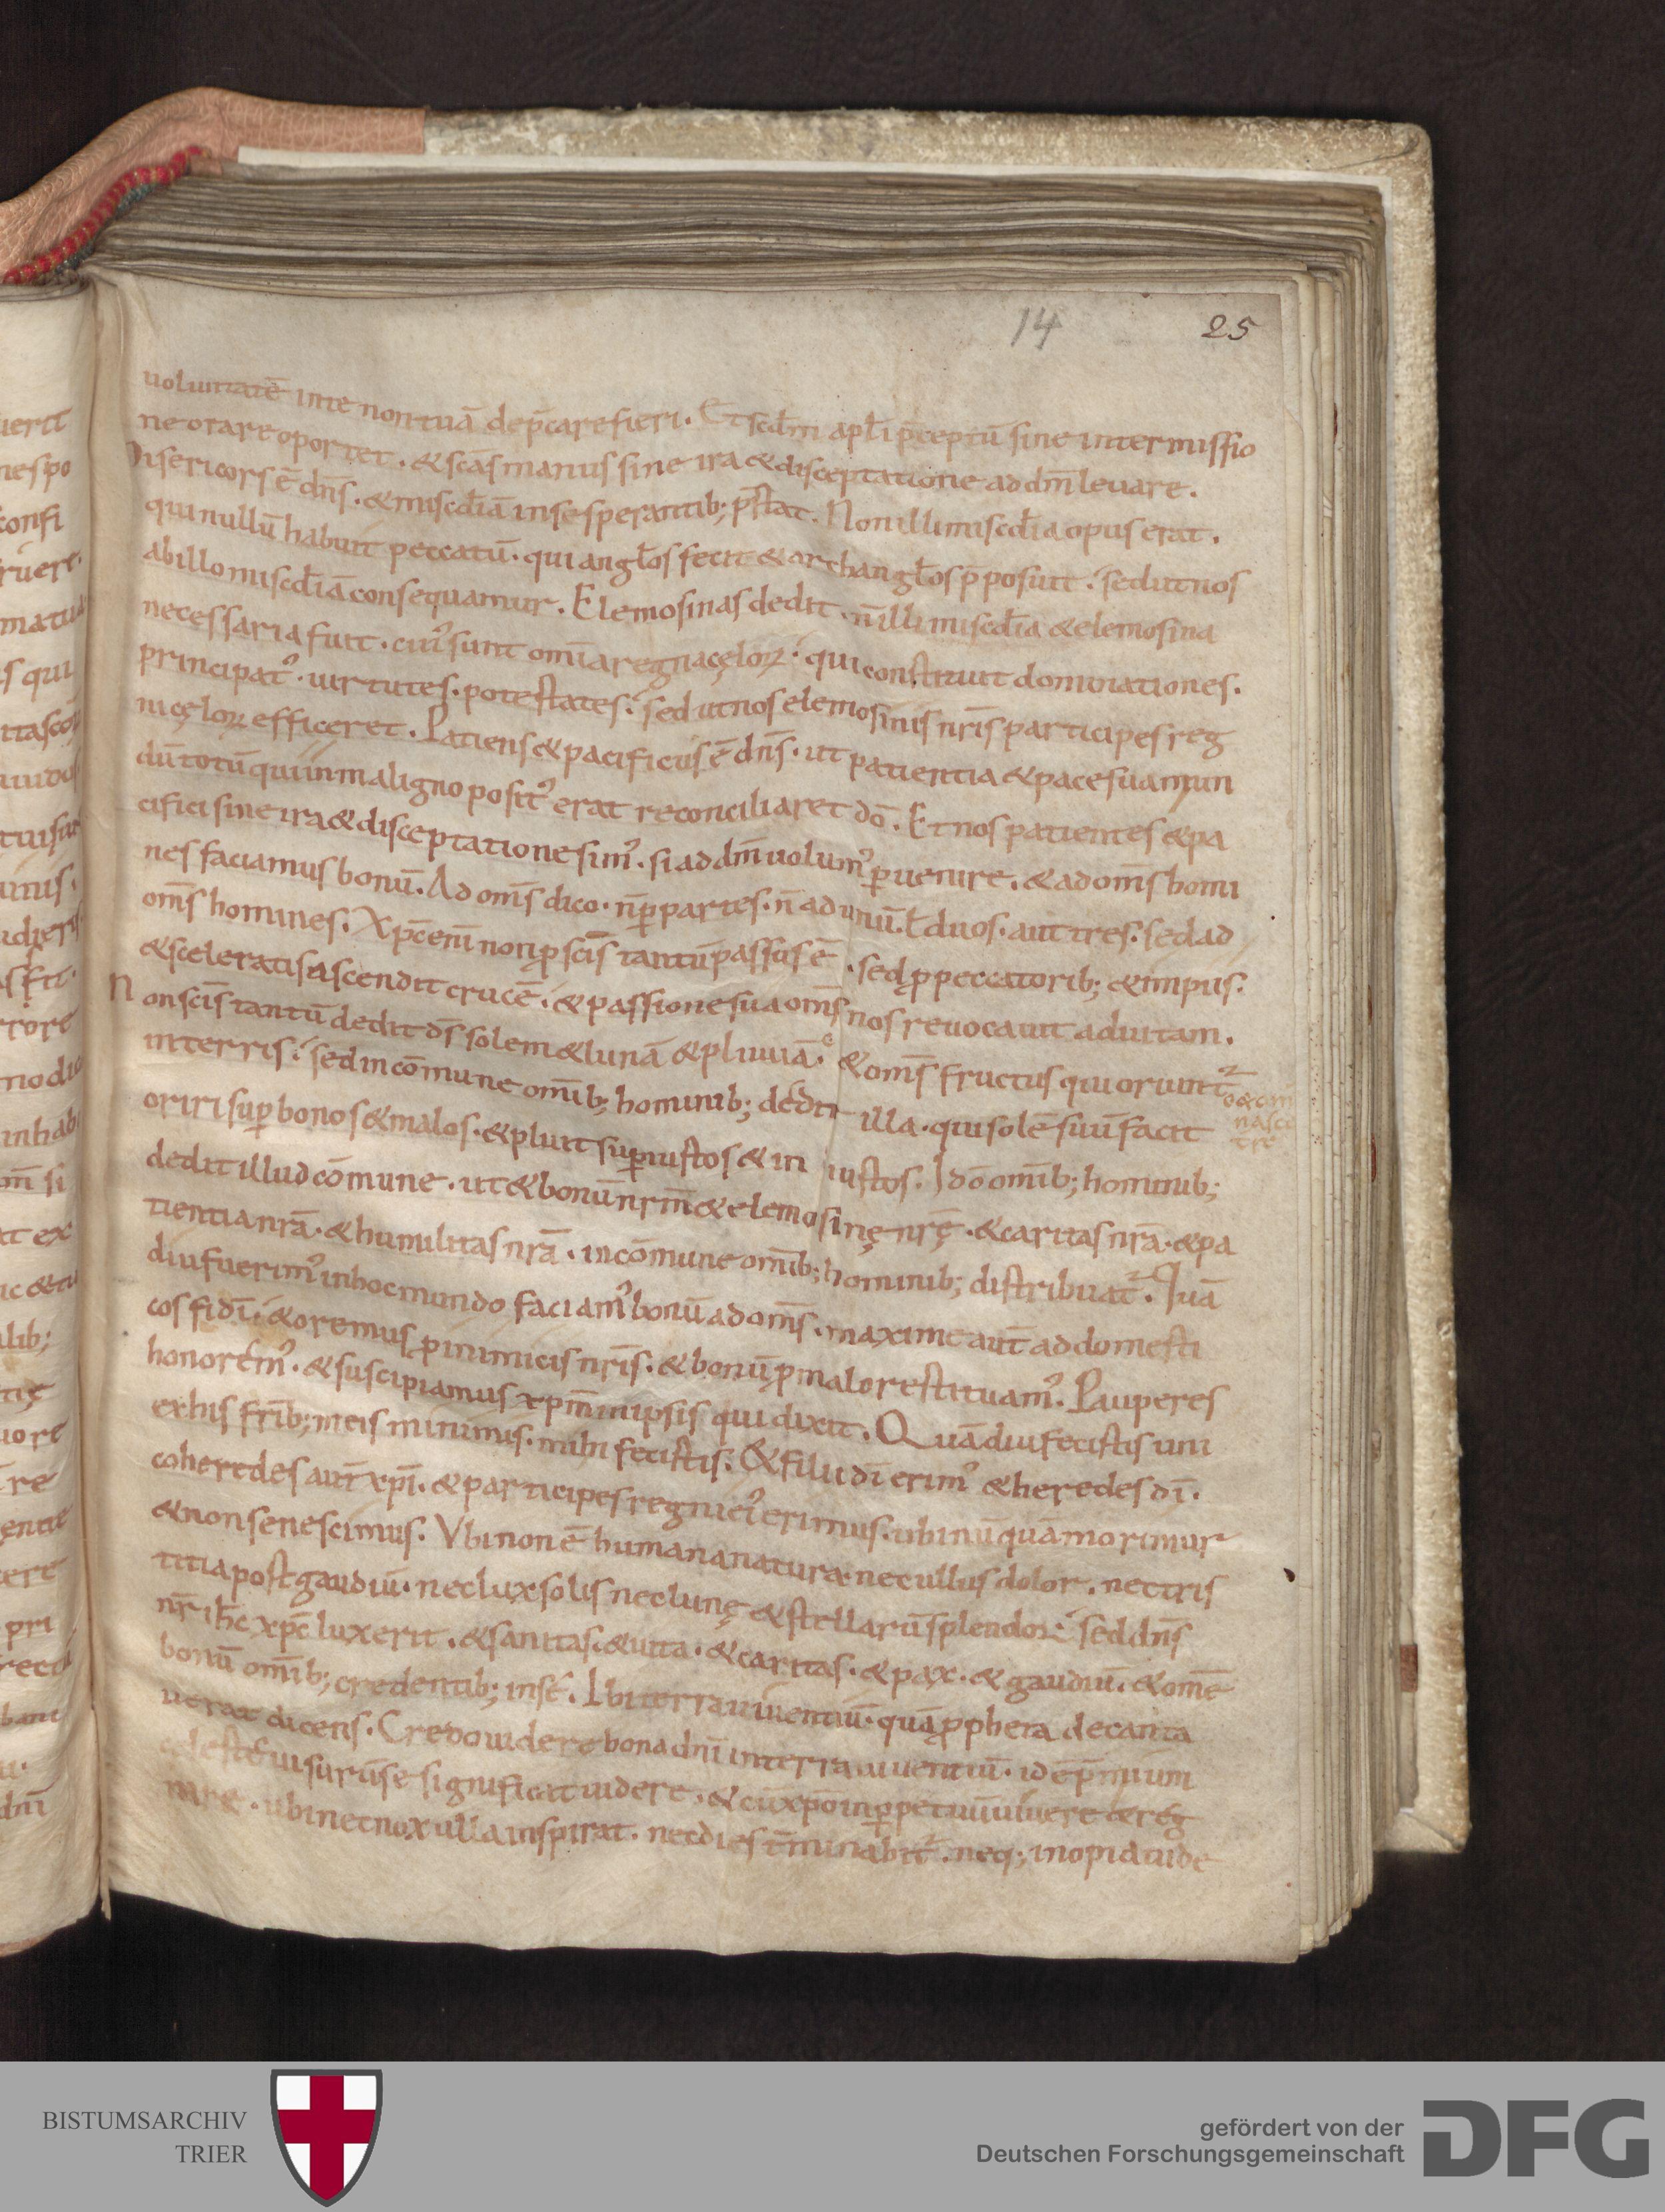 14 25
uoluntatē inte non tuā dep̄care fieri. Et scdm̄ apl̄i p̄ceptū sine intermissio
ne orare oportet. & scās manus sine ira & disceptatione ad dm̄ leuare.
Misericors ē dn̄s. & miscd̄iā in se sperantib; p̄stat. Non illi miscd̄ia opus erat.
qui nullū habuit peccatū. qui angl̄os fecit & archangl̄os p̄posuit. sed ut nos
ab illo miscd̄iā consequamur. Elemosinas dedit. n̄ illi miscd̄ia & elemosina
necessaria fuit. cui᾽ sunt om̄ia regna cęloꝝ. qui constituit dominationes.
principat᾽. uirtutes. potestates. sed ut nos elemosinis nr̄is participes reg
ni cęloꝝ efficeret. Patiens & pacificus ē dn̄s. ut patientia & pace sua mun
dū totū qui in maligno posit᾽ erat reconciliaret dō. Et nos patientes & pa
cifici sine ira & disceptatione sim᾽. si ad dm̄ uolum᾽ ꝑuenire. & ad om̄s homi
nes faciamus bonū. Ad om̄s dico. n̄ ꝑ partes. n̄ ad unū. ł duos. aut tres. sed ad
om̄s homines. Xp̄c eni non ꝓ scīs tantū passus ē. sed ꝓ peccatorib; & impiis.
& sceleratis ascendit crucē. & passione sua om̄s nos reuocauit ad uitam.
Non scīs tantū dedit d̄s solem & lunā & pluuiā. & om̄s fructus qui oriunt᷑
in terris. sed in cōmune om̄ib; hominib; dedit illa. qui solē suū facit
oriri suꝑ bonos & malos. & pluit suꝑ iustos & in iustos. Idō om̄ib; hominib;
dedit illud cōmune. ut & bonū nr̄m & elemosinę nr̄ę. & caritas nr̄a. & pa
tientia nr̄a. & humilitas nr̄a. in cōmune om̄ib; hominib; distribuat᷑. Quā
diu fuerim᾽ in hoc mundo faciam᾽ bonū ad om̄s. maxime aut̄ ad domesti
cos fidī. & oremus ꝓ inimicis nr̄is. & bonū ꝓ malo restituam᾽. Pauperes
honorem᾽. & suscipiamus xp̄m in ipsis qui dixit. Quādiu fecistis uni
ex his fr̄ib; meis minimis. mihi fecistis. & filii dī erim᾽ & heredes dī.
coheredes aut̄ xp̄i. & participes regni ei᾽ erimus. ubi nūquā morimur
& non senescimus. Vbi non ē humana natura. nec ullus dolor. nec tris
titia post gaudiū. nec lux solis nec lunę & stellarū splendor. sed dn̄s
nr̄ ih̄c xp̄c luxerit. & sanitas. & uita. & caritas. & pax. & gaudiū. & om̄e
bonū om̄ib; credentib; in se. Ibi terra uiuentiū. quā ꝓpheta decanta
uerat dicens. Credo uidere bona dn̄i in terra uiuentiū. id ē p̄miū
celeste uisurū se significat uidere. & cū xp̄o in ꝑpetuū uiuere & reg
nare. ubi nec nox ulla inspirat. nec dies t̄minabit᷑. neq; inopia uide
BISTUMSARCHIV
TRIER
gefördert von der
Deutschen Forschungsgemeinschaft
DFG